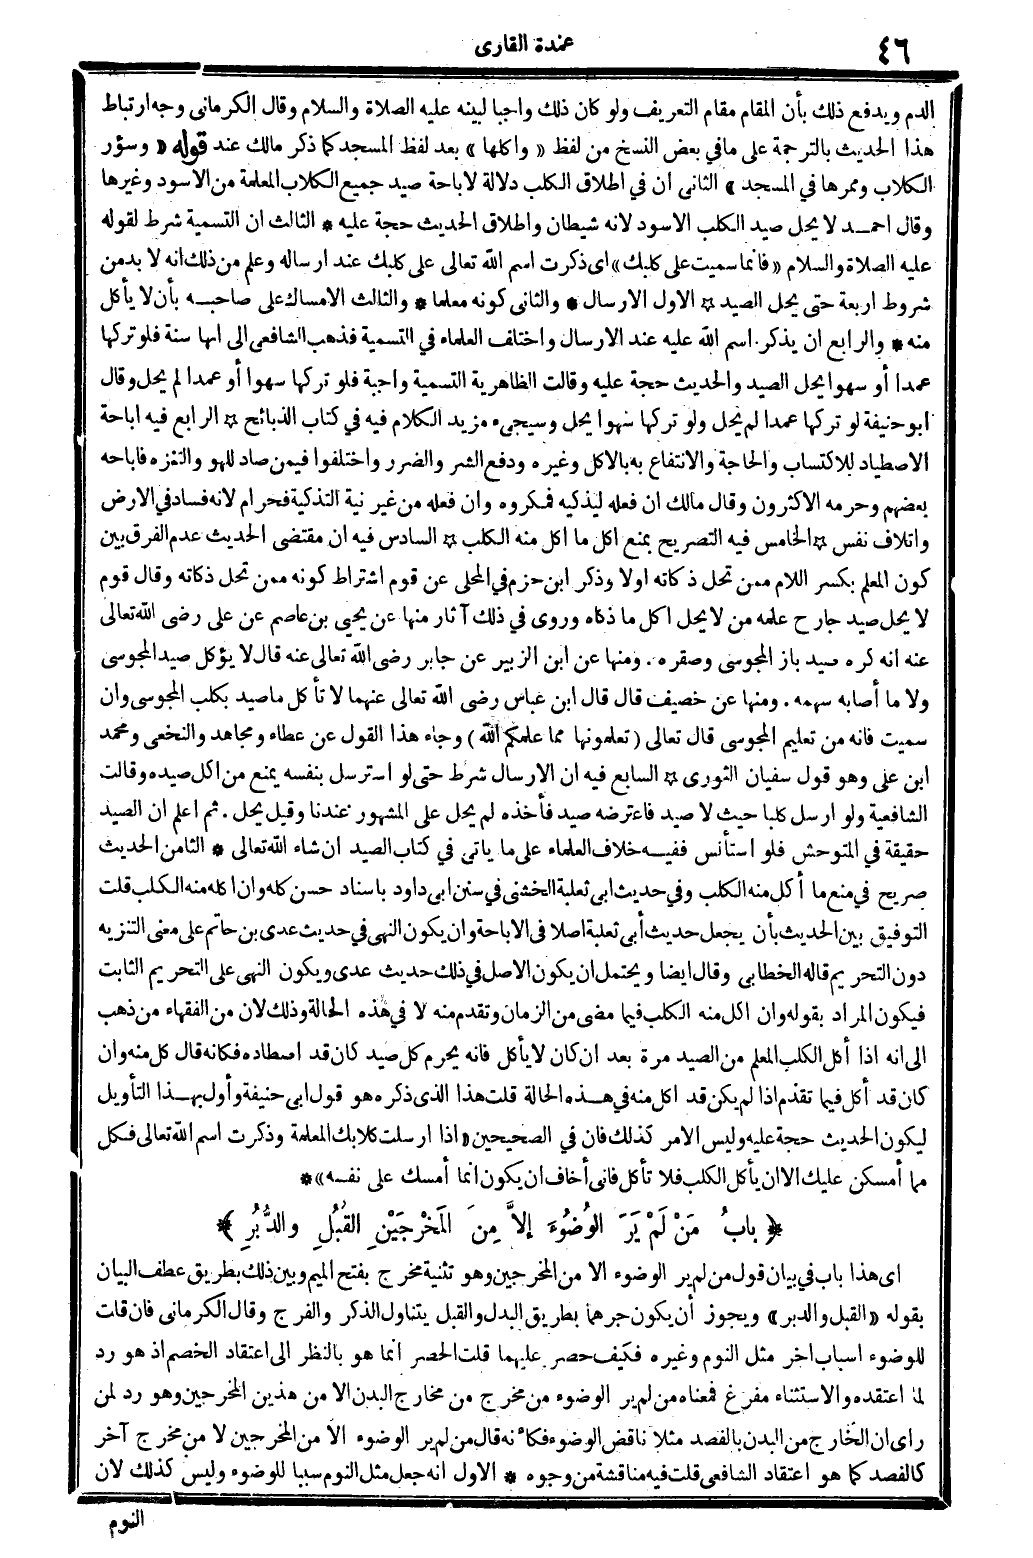 ٤٦
عمدة القارى
الدم ويدفع ذلك بأن المقام مقام التعريف ولو كان ذلك واجبا لبينه عليه الصلاة والسلام وقال الكرمانى وجه ارتباط
هذا الحديث بالترجمة على مافي بعض النسخ من لفظ « واكلها » بعد لفظ المسجد كما ذكر مالك عند قوله « وسؤر
الكلاب وممرها في المسجد » الثانى ان في اطلاق الكلب دلالة لاباحة صيد جميع الكلاب المعلمة من الاسود وغيرها
وقال احمد لا يحل صيد الكلب الاسود لانه شيطان واطلاق الحديث حجة عليه * الثالث ان التسمية شرط لقوله
عليه الصلاة والسلام « فانما سميت على كلبك » اى ذكرت اسم الله تعالى على كلبك عند ارساله وعلم من ذلك انه لا بد من
شروط اربعة حتى يحل الصيد ☆ الاول الارسال * والثانى كونه معلما * والثالث الامساك على صاحبه بأن لا يأكل
منه * والرابع ان يذكر اسم الله عليه عند الارسال واختلف العلماء في التسمية فذهب الشافعى الى انها سنة فلو تركها
عمدا أو سهوا يحل الصيد والحديث حجة عليه وقالت الظاهرية التسمية واجبة فلو تركها سهوا أو عمدا لم يحل وقال
ابو حنيفة لو تركها عمدا لم يحل ولو تركها سهوا يحل وسيجىء مزيد الكلام فيه في كتاب الذبائح ☆ الرابع فيه اباحة
الاصطياد للاكتساب والحاجة والانتفاع به بالاكل وغيره ودفع الشر والضرر واختلفوا فيمن صاد للهو والتنزه فاباحه
بعضهم وحرمه الاكثرون وقال مالك ان فعله ليذكيه فمكروه وان فعله من غير نية التذكية فحرام لانه فساد في الارض
واتلاف نفس ☆ الخامس فيه التصريح بمنع اكل ما اكل منه الكلب ☆ السادس فيه ان مقتضى الحديث عدم الفرق بين
كون المعلم بكسر اللام ممن تحل ذكاته اولا وذكر ابن حزم في المحلى عن قوم اشتراط كونه ممن تحل ذكاته وقال قوم
لا يحل صيد جارح علمه من لا يحل اكل ما ذكاه وروى في ذلك آثار منها عن يحيى بن عاصم عن على رضى الله تعالى
عنه انه كره صيد باز المجوسى وصقره . ومنها عن ابن الزبير عن جابر رضى الله تعالى عنه قال لا يؤكل صيد المجوسى
ولا ما أصابه سهمه . ومنها عن خصيف قال قال ابن عباس رضى الله تعالى عنهما لا تأكل ما صيد بكلب المجوسى وان
سميت فانه من تعليم المجوسى قال تعالى ( تعلمونها مما علمكم الله ) وجاء هذا القول عن عطاء ومجاهد والنخعى ومحمد
ابن على وهو قول سفيان الثورى ☆ السابع فيه ان الارسال شرط حتى لو استرسل بنفسه يمنع من اكل صيده وقالت
الشافعية ولو ارسل كلبا حيث لا صيد فاعترضه صيد فأخذه لم يحل على المشهور عندنا وقيل يحل . ثم اعلم ان الصيد
حقيقة في المتوحش فلو استأنس ففيه خلاف العلماء على ما ياتى في كتاب الصيد ان شاء الله تعالى * الثامن الحديث
صريح في منع ما أكل منه الكلب وفي حديث ابى ثعلبة الخشنى في سنن ابى داود باسناد حسن كله وان اكله منه الكلب قلت
التوفيق بين الحديث بأن يجعل حديث أبى ثعلبة اصلا فى الاباحة وان يكون النهى في حديث عدى بن حاتم على معنى التنزيه
دون التحريم قاله الخطابى وقال ايضا ويحتمل ان يكون الاصل في ذلك حديث عدى ويكون النهى على التحريم الثابت
فيكون المراد بقوله وان اكل منه الكلب فيما مضى من الزمان وتقدم منه لا في هذه الحالة وذلك لان من الفقهاء من ذهب
الى انه اذا أكل الكلب المعلم من الصيد مرة بعد ان كان لا يأكل فانه يحرم كل صيد كان قد اصطاده فكانه قال كل منه وان
كان قد أكل فيما تقدم اذا لم يكن قد اكل منه في هذه الحالة قلت هذا الذى ذكره هو قول ابى حنيفة وأول بهذا التأويل
ليكون الحديث حجة عليه وليس الامر كذلك فان في الصحيحين « اذا ارسلت كلابك المعلمة وذكرت اسم الله تعالى فكل
مما أمسكن عليك الا ان يأكل الكلب فلا تأكل فانى أخاف ان يكون انما أمسك على نفسه » *
﴿ بابُ مَنْ لَمْ يَرَ الوُضُوءَ إلاَّ مِنَ المَخْرجَيْنِ القُبُلِ والدُّبُرِ ﴾
اى هذا باب في بيان قول من لم ير الوضوء الا من المخرجين وهو تثنية مخرج بفتح الميم وبين ذلك بطريق عطف البيان
بقوله « القبل والدبر » ويجوز أن يكون جرهما بطريق البدل والقبل يتناول الذكر والفرج وقال الكرمانى فان قلت
للوضوء اسباب اخر مثل النوم وغيره فكيف حصر عليهما قلت الحصر انما هو بالنظر الى اعتقاد الخصم اذ هو رد
لما اعتقده والاستثناء مفرغ فمعناه من لم ير الوضوء من مخرج من مخارج البدن الا من هذين المخرجين وهو رد لمن
راى ان الخارج من البدن بالفصد مثلا ناقض الوضوء فكأنه قال من لم ير الوضوء الا من المخرجين لا من مخرج آخر
كالفصد كما هو اعتقاد الشافعى قلت فيه مناقشة من وجوه * الاول انه جعل مثل النوم سببا للوضوء وليس كذلك لان
النوم